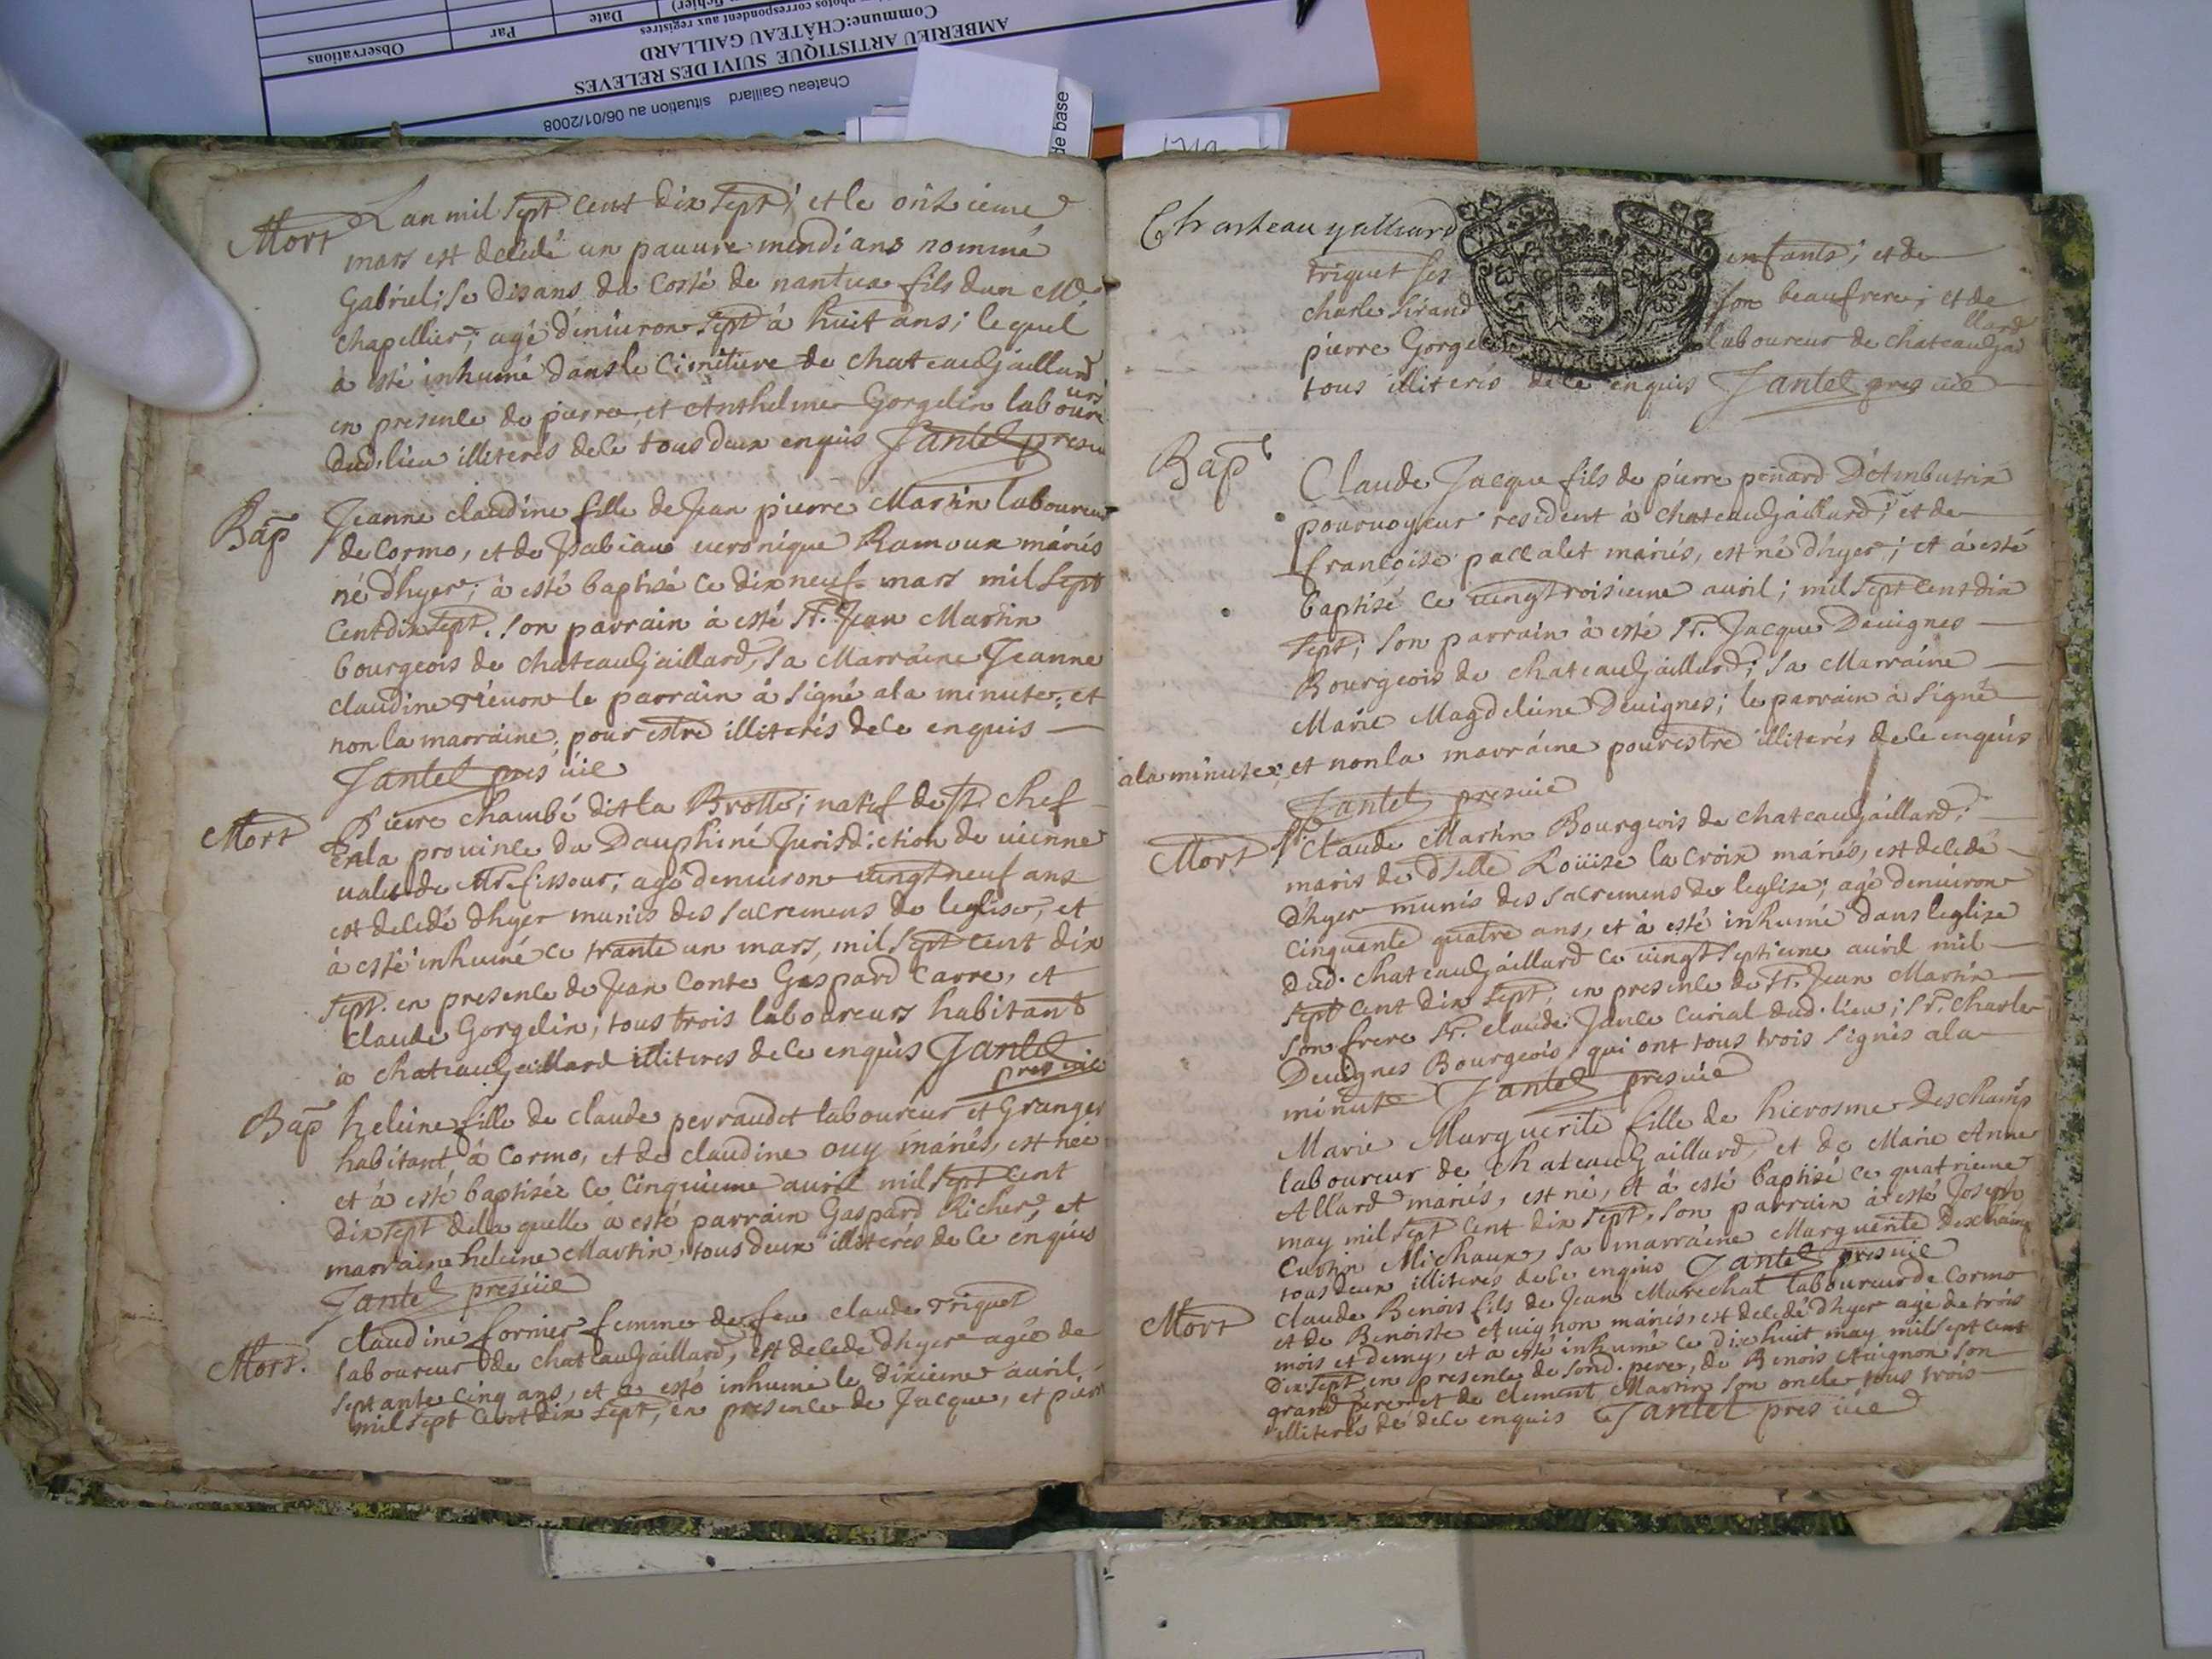 Observations
Par
Date
photos correspondent aux registres
Commune: CHÂTEAU GAILLARD
AMBERIEU ARTISTIQUE SUIVI DES RELEVES
Chateau Gaillard situation au 06/01/2008
de base
Mort
Lan mil sept cent dix sept; et le onzieme
mars est decedé un pauure mendians nommé
Gabriel; se disans du costé de nantua fils dun Md.
chapellier; agé denuiron sept à huit ans; lequel
à esté inhumé dans le cimitiere de chateaugaillard
en presence de pierre, et Anthelme Gorgelin laboureurs
dud. lieu illiterés dece tous deux enquis Jantel
Bap
Jeanne claudine fille de Jean pierre Martin laboureur
de Cormo, et de ueronique Ramoux mariés
né dhyer; à esté baptisé ce dixneuf mars mil sept
cent dix sept. son parrain à esté Sr. Jean Martin
bourgeois de chateaugaillard, sa Marraine Jeanne
claudine le parrain à signé ala minute, et
non la marraine, pour estre illiterés dece enquis
Jantel pres uic
Mort
Pierre chambé dit la Brotte; natif de St. chef
en la prouince du Dauphiné Jurisdiction de uienne
ualet de Mr. agé denuiron uingt neuf ans
est decedé dhyer munis des sacremens de leglise, et
à esté inhumé ce trante un mars, mil sept cent dix
sept. en presence de Jean Conte Gaspard Carre, et
claude Gorgelin, tous trois laboureurs habitant
à chateaugaillard illiteres dece enquis Jantel
pres uic
Bap
heleine fille de claude perraudet laboureur et Granger
habitant à Cormo, et de claudine ouy mariés, est née
et à esté baptisée ce cinquieme auril mil sept cent
dix sept dela quelle à esté parrain Gaspard Richer, et
marraine heleine Martin, tous deux illiterés de ce enquis
Jantel presuic
Mort.
claudine fornier femme de feu claude triquet
laboureur de chateaugaillard, est decede dhyer agée de
septante cinq ans, et a esté inhumé le dixieme auril
mil sept cent dix sept, en presence de Jacque, et pierre
Chasteaugalliard
triquet ses enfants; et de
charle Sirand son beaufrere; et de
pierre Gorgelin laboureur de chateaugaillard
tous illiterés dece enquis Jantel pres uic
Bap
Claude Jacque fils de pierre penard D'Ambutrix
pouruoyeur resident à chateaugaillard; et de
francoise paccalet mariés, est né dhyer; et à esté
baptisé ce uingtroisieme auril; mil sept cent dix
sept; son parrain à esté Sr. Jacque Deuignes
Bourgeois de chateaugaillard; sa Marraine
Marie Magdeleine Deuignes; le parrain à signé
ala minute, et non la marraine pour estre illiterés dece enquis
Jantel presuic
Mort
Sr. Claude Martin Bourgeois de chateaugaillard;
maris de dselle Loüise la croix mariés, est decedé
dhyer munis des sacremens de leglise; agé denuiron
cinquante quatre ans, et à esté inhumé dans leglise
dud. chateaugaillard ce uingt septieme auril mil
sept cent dix sept; en presence de Sr. Jean Martin
son frere Sr. claude Jance curial dud. lieu; Sr. Charle
Deuignes Bourgeois qui ont tous trois signés ala
minute Jantel presuic
Marie Marguerite fille de hierosme Deschamp
laboureur de chateaugaillard, et de Marie Anne
Allard mariés, est né, et à esté baptisé ce quatrieme
may mil sept cent dix sept, son parrain à esté Joseph
Michaux, sa marraine Marguerite Deschamp
tous deux illiteres dece enquis Jantel presuic
Mort
claude Benois fils de Jean Marechal laboureur de Cormo
et de Benoiste Auignon mariés, est decedé dhyer agé de trois
mois et demy, et à esté inhumé ce dixhuit may mil sept cent
dix sept, en presence de sond. pere, de Benois Auignon son
grand pere et de clement Martin son oncle tous trois
illiterés de dece enquis Jantel pres uic